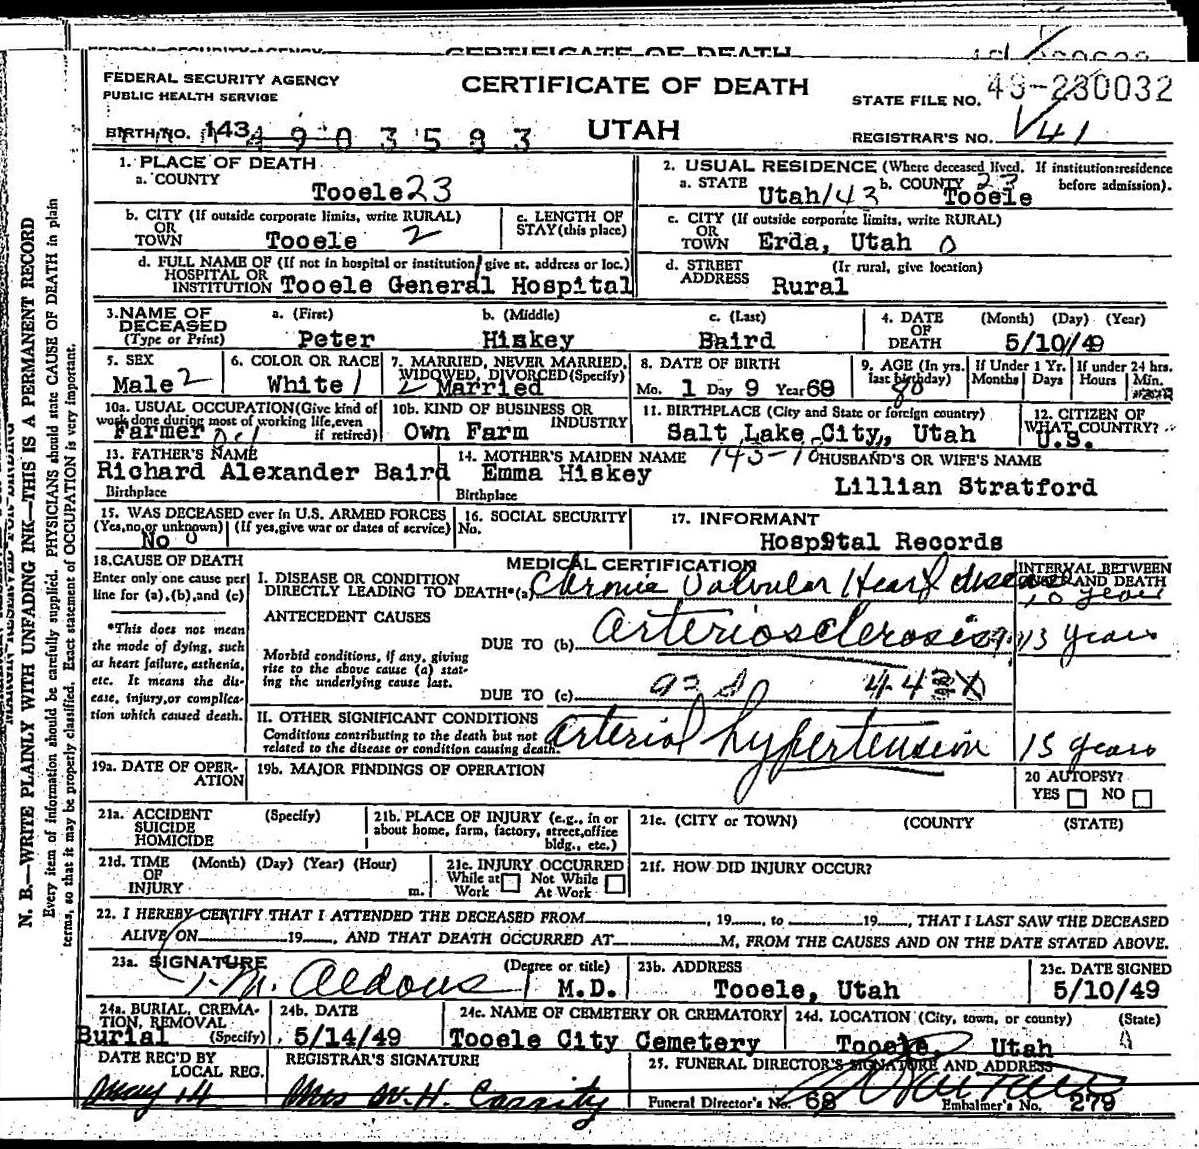 CERTIFICATE OF DEATH
FEDERAL SECURITY AGENCY
PUBLIC HEALTH SERVICE
CERTIFICATE OF DEATH
UTAH
STATE FILE NO. 49-230032
REGISTRAR'S NO. 41
BIRTH NO. 143 4903583
1. PLACE OF DEATH
a. COUNTY
Tooele 23
2. USUAL RESIDENCE (Where deceased lived. If institution:residence before admission).
a. STATE Utah/43 b. COUNTY 23 Tooele
b. CITY (If outside corporate limits, write RURAL)
OR
TOWN Tooele 2
c. LENGTH OF STAY (this place)
c. CITY (If outside corporate limits, write RURAL)
OR
TOWN Erda, Utah 0
d. FULL NAME OF (If not in hospital or institution, give st. address or loc.)
HOSPITAL OR
INSTITUTION Tooele General Hospital
d. STREET ADDRESS (If rural, give location)
Rural
3. NAME OF DECEASED (Type or Print)
a. (First) b. (Middle) c. (Last)
Peter Hiskey Baird
4. DATE OF DEATH (Month) (Day) (Year)
5/10/49
5. SEX
Male 2
6. COLOR OR RACE
White 1
7. MARRIED, NEVER MARRIED, WIDOWED, DIVORCED (Specify)
2 Married
8. DATE OF BIRTH
Mo. 1 Day 9 Year 69
9. AGE (In yrs. last birthday)
80
If Under 1 Yr. Months Days
If under 24 hrs. Hours Min.
10a. USUAL OCCUPATION (Give kind of work done during most of working life, even if retired)
Farmer
10b. KIND OF BUSINESS OR INDUSTRY
Own Farm
11. BIRTHPLACE (City and State or foreign country)
Salt Lake City, Utah
12. CITIZEN OF WHAT COUNTRY?
U.S.
13. FATHER'S NAME
Richard Alexander Baird
Birthplace
14. MOTHER'S MAIDEN NAME
Emma Hiskey
Birthplace
143-10
HUSBAND'S OR WIFE'S NAME
Lillian Stratford
15. WAS DECEASED ever in U.S. ARMED FORCES
(Yes, no, or unknown) (If yes, give war or dates of service)
No 0
16. SOCIAL SECURITY No.
17. INFORMANT
Hospital Records
18. CAUSE OF DEATH
Enter only one cause per line for (a), (b), and (c)
*This does not mean the mode of dying, such as heart failure, asthenia, etc. It means the disease, injury, or complication which caused death.
MEDICAL CERTIFICATION
INTERVAL BETWEEN ONSET AND DEATH
I. DISEASE OR CONDITION
DIRECTLY LEADING TO DEATH*(a) Chronic Valvular Heart disease 10 years
ANTECEDENT CAUSES
DUE TO (b) arteriosclerosis 13 years
Morbid conditions, if any, giving rise to the above cause (a) stating the underlying cause last.
DUE TO (c)
II. OTHER SIGNIFICANT CONDITIONS
Conditions contributing to the death but not related to the disease or condition causing death.
arterial hypertension 15 years
19a. DATE OF OPERATION
19b. MAJOR FINDINGS OF OPERATION
20 AUTOPSY?
YES NO
21a. ACCIDENT SUICIDE HOMICIDE (Specify)
21b. PLACE OF INJURY (e.g., in or about home, farm, factory, street, office bldg., etc.)
21c. (CITY or TOWN) (COUNTY (STATE)
21d. TIME OF INJURY (Month) (Day) (Year) (Hour) m.
21e. INJURY OCCURRED
While at Work Not While At Work
21f. HOW DID INJURY OCCUR?
22. I HEREBY CERTIFY THAT I ATTENDED THE DECEASED FROM , 19 , to 19 , THAT I LAST SAW THE DECEASED
ALIVE ON 19 , AND THAT DEATH OCCURRED AT M, FROM THE CAUSES AND ON THE DATE STATED ABOVE.
23a. SIGNATURE (Degree or title)
M. Aldous M.D.
23b. ADDRESS
Tooele, Utah
23c. DATE SIGNED
5/10/49
24a. BURIAL, CREMATION, REMOVAL (Specify)
Burial
24b. DATE
5/14/49
24c. NAME OF CEMETERY OR CREMATORY
Tooele City Cemetery
24d. LOCATION (City, town, or county) (State)
Tooele, Utah
DATE REC'D BY LOCAL REG.
May 14
REGISTRAR'S SIGNATURE
Mrs W. H. Cassity
25. FUNERAL DIRECTOR'S SIGNATURE AND ADDRESS
Funeral Director's No. 68 Embalmer's No. 279
N. B.—WRITE PLAINLY WITH UNFADING INK—THIS IS A PERMANENT RECORD
Every item of information should be carefully supplied. PHYSICIANS should state CAUSE OF DEATH in plain
terms, so that it may be properly classified. Exact statement of OCCUPATION is very important.